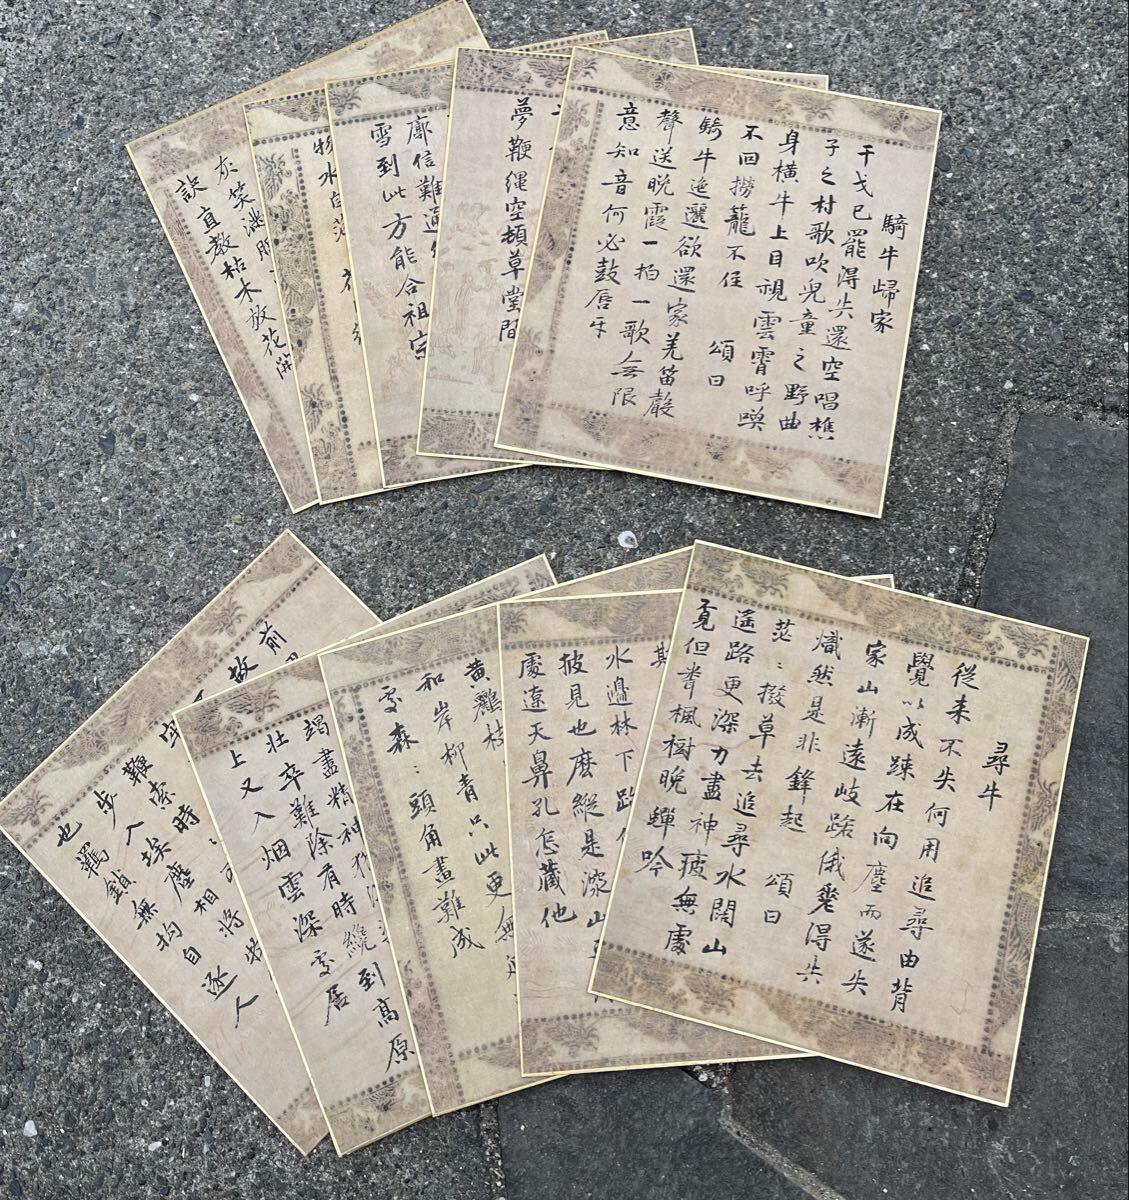 騎牛歸家
干戈已罷得失還空唱樵
子之村歌吹兒童之野曲
身橫牛上目視雲霄呼喚
不回撈籠不住 頌曰
騎牛迤邐欲還家羌笛聲
聲送晚霞一拍一歌無限
意知音何必鼓唇牙
夢鞭繩空頓草堂間
廓信難通
雪到此方能合祖宗
水自茫
灰笑滿腮
訣直教枯木放花開
尋牛
從来不失何用追尋由背
覺以成疎在向塵而遂失
家山漸遠岐路俄差得失
熾然是非鋒起 頌曰
茫〻撥草去追尋水闊山
遙路更深力盡神疲無處
覓但聞楓樹晚蟬吟
水邊林下跡
披見也麼縱是深山
處遼天鼻孔怎藏他
黃鸝枝
和岸柳青只此更無
處森〻頭角畫難成
竭盡精神
壯卒難除有時纔到高原
上又入烟雲深處居
前
鞭索時〻
步入埃塵相將
也羈鎖無拘自逐人